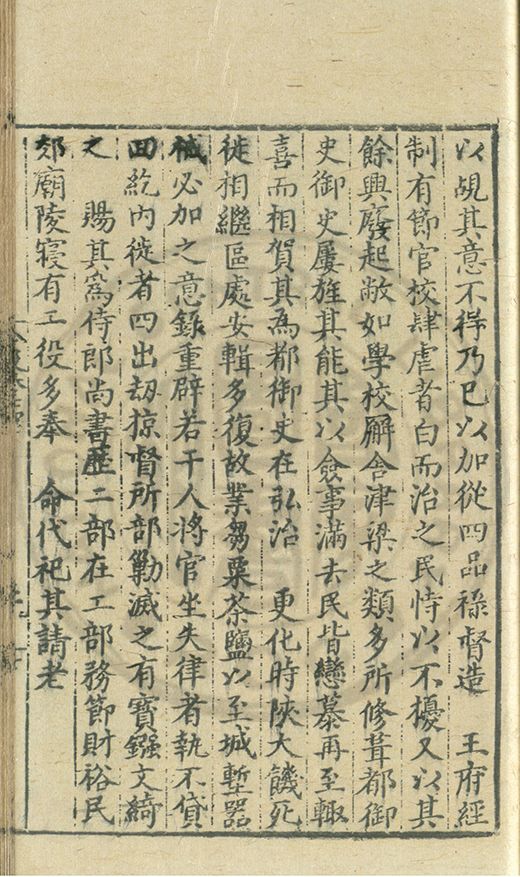 以覘其意不得乃已以加從四品祿督造　王府經
制有節官校肆虐者白而治之民恃以不擾又以其
餘興廢起敝如學校廨舍津梁之類多所修葺都御
史御史屢旌其能其以僉事滿去民皆戀慕再至輙
喜而相賀其為都御史在弘治　更化時陝大饑死
徙相繼區處安輯多復故業芻粟茶鹽以至城塹器
械必加之意錄重辟若干人將官坐失律者執不貸
回紇內徙者四出刼掠督所部勦滅之有寶鏹文綺
之　賜其為侍郎尚書歷二部在工部務節財裕民
郊廟陵寢有工役多奉　命代祀其請老